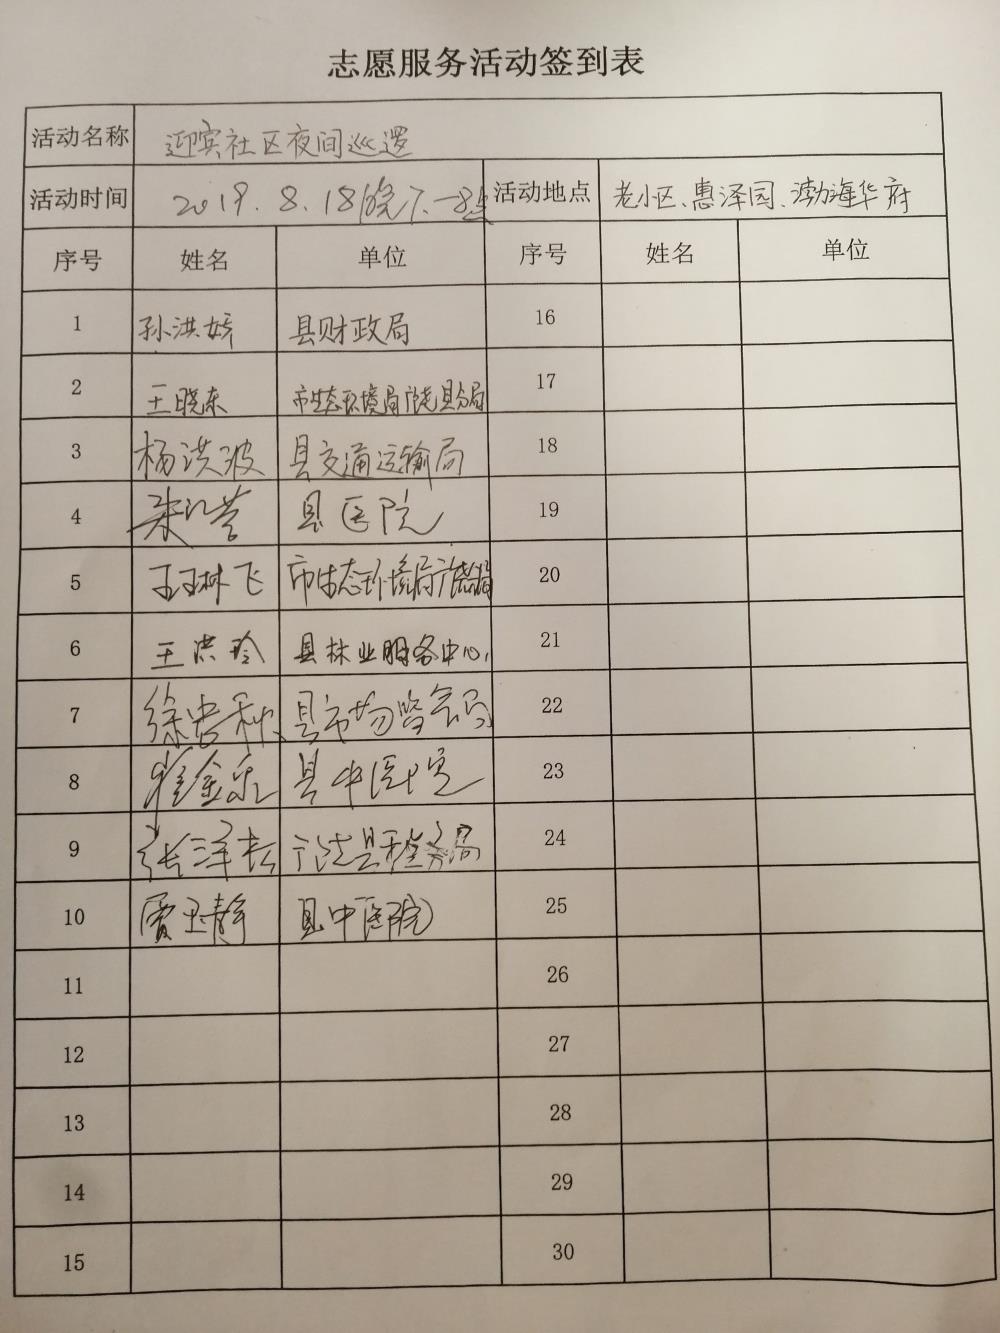 志愿服务活动签到表
活动名称 迎宾社区夜间巡逻
活动时间 2019.8.18(晚7-8点 活动地点 老小区、惠泽园、渤海华府
序号 姓名 单位 序号 姓名 单位
1 孙洪妍 县财政局 16
2 王晓东 市生态环境局广饶县分局 17
3 杨洪波 县交通运输局 18
4 县医院 19
5 王琳飞 市生态环境局广饶分局 20
6 王洪玲 县林业服务中心 21
7 徐忠秋 县市场监管局 22
8 崔金泉 县中医院 23
9 张泽 广饶县税务局 24
10 贾玉静 县中医院 25
11 26
12 27
13 28
14 29
15 30